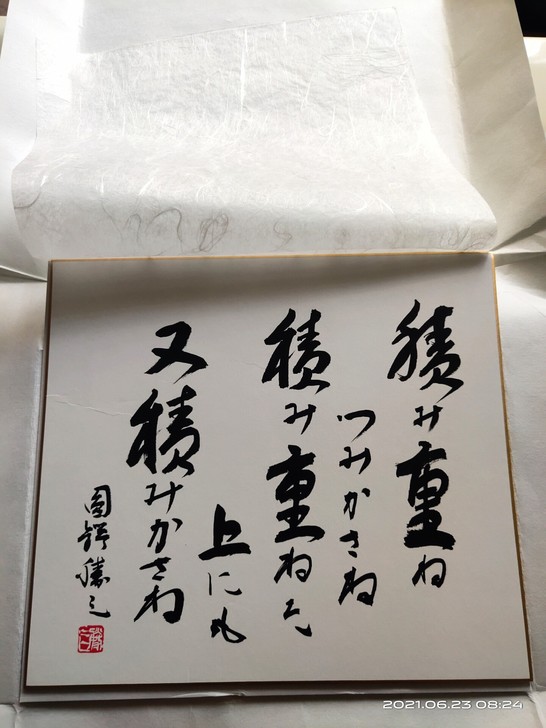 積み重ね
つみかさね
積み重ねた
上にも
又積みかさね
圓鍔勝三
2021.06.23 08:24